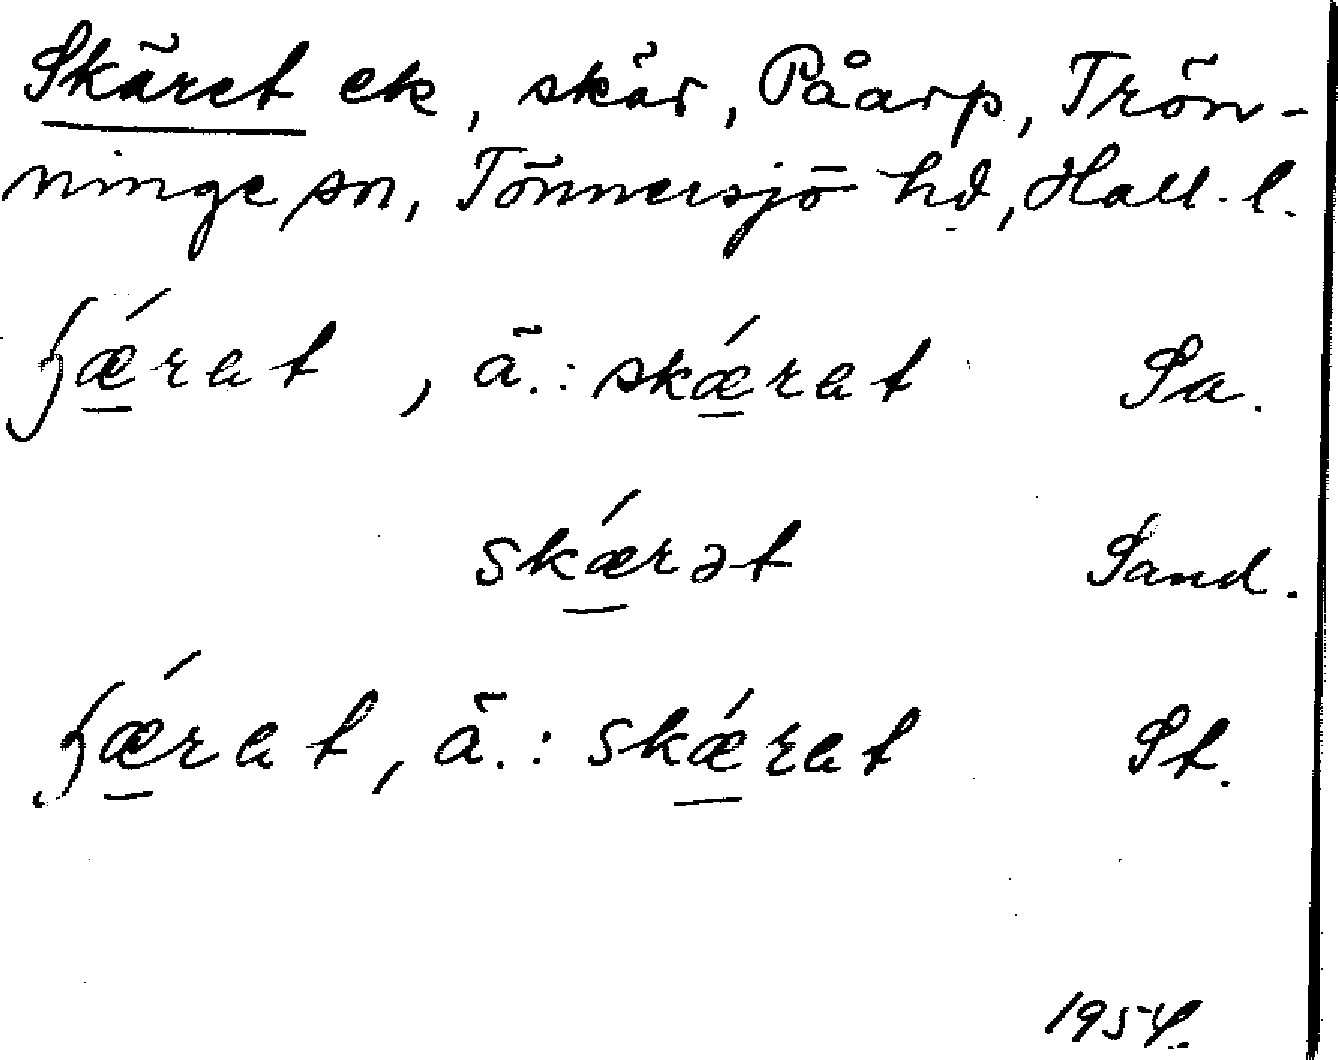 Skäret ek, skär, Påarp, Trön-
ninge sn, Tönnersjö hd, Hall. l.
ʃǽ̱rat , ä.: skǽ̱rat Sa.
skǽ̱rət Sand.
ʃǽ̱rat, ä.: skǽ̱rat St.
1954.